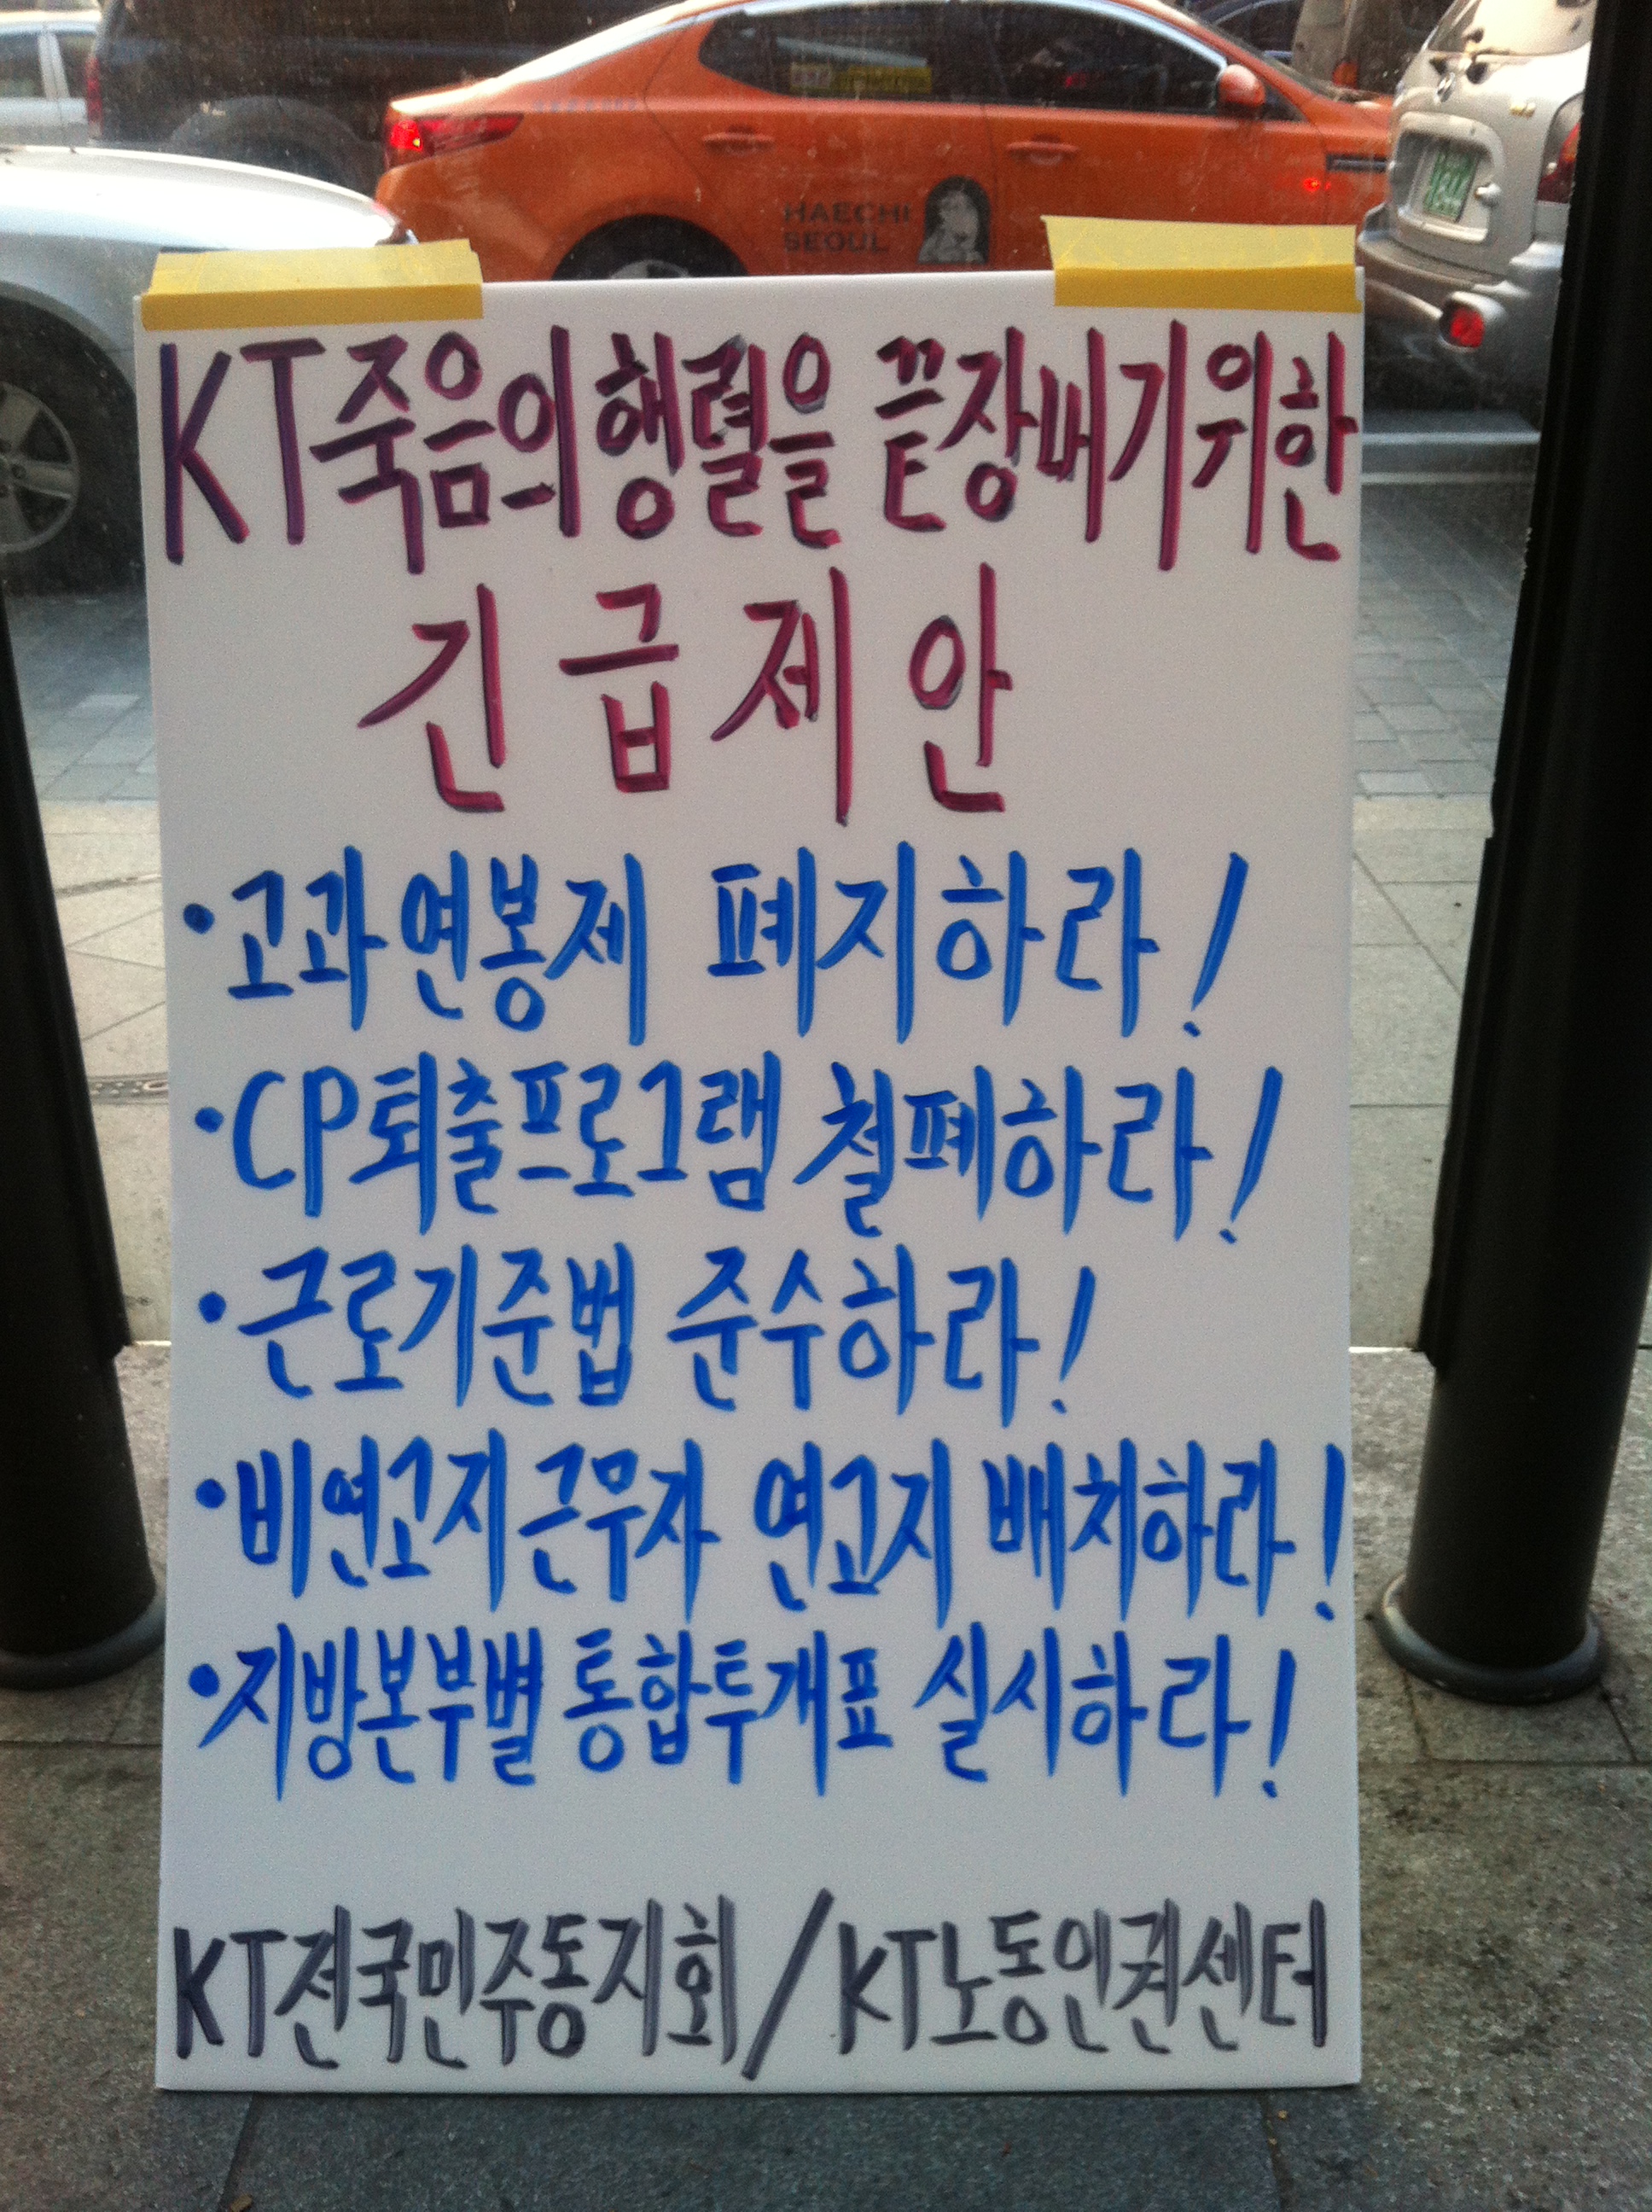 HAECHI
SEOUL
KT죽음의행렬을 끝장내기위한
긴급제안
•고과연봉제 폐지하라!
•CP퇴출프로그램 철폐하라!
•근로기준법 준수하라!
•비연고지근무자 연고지 배치하라!
•지방본부별 통합투개표 실시하라!
KT전국민주동지회/KT노동인권센터